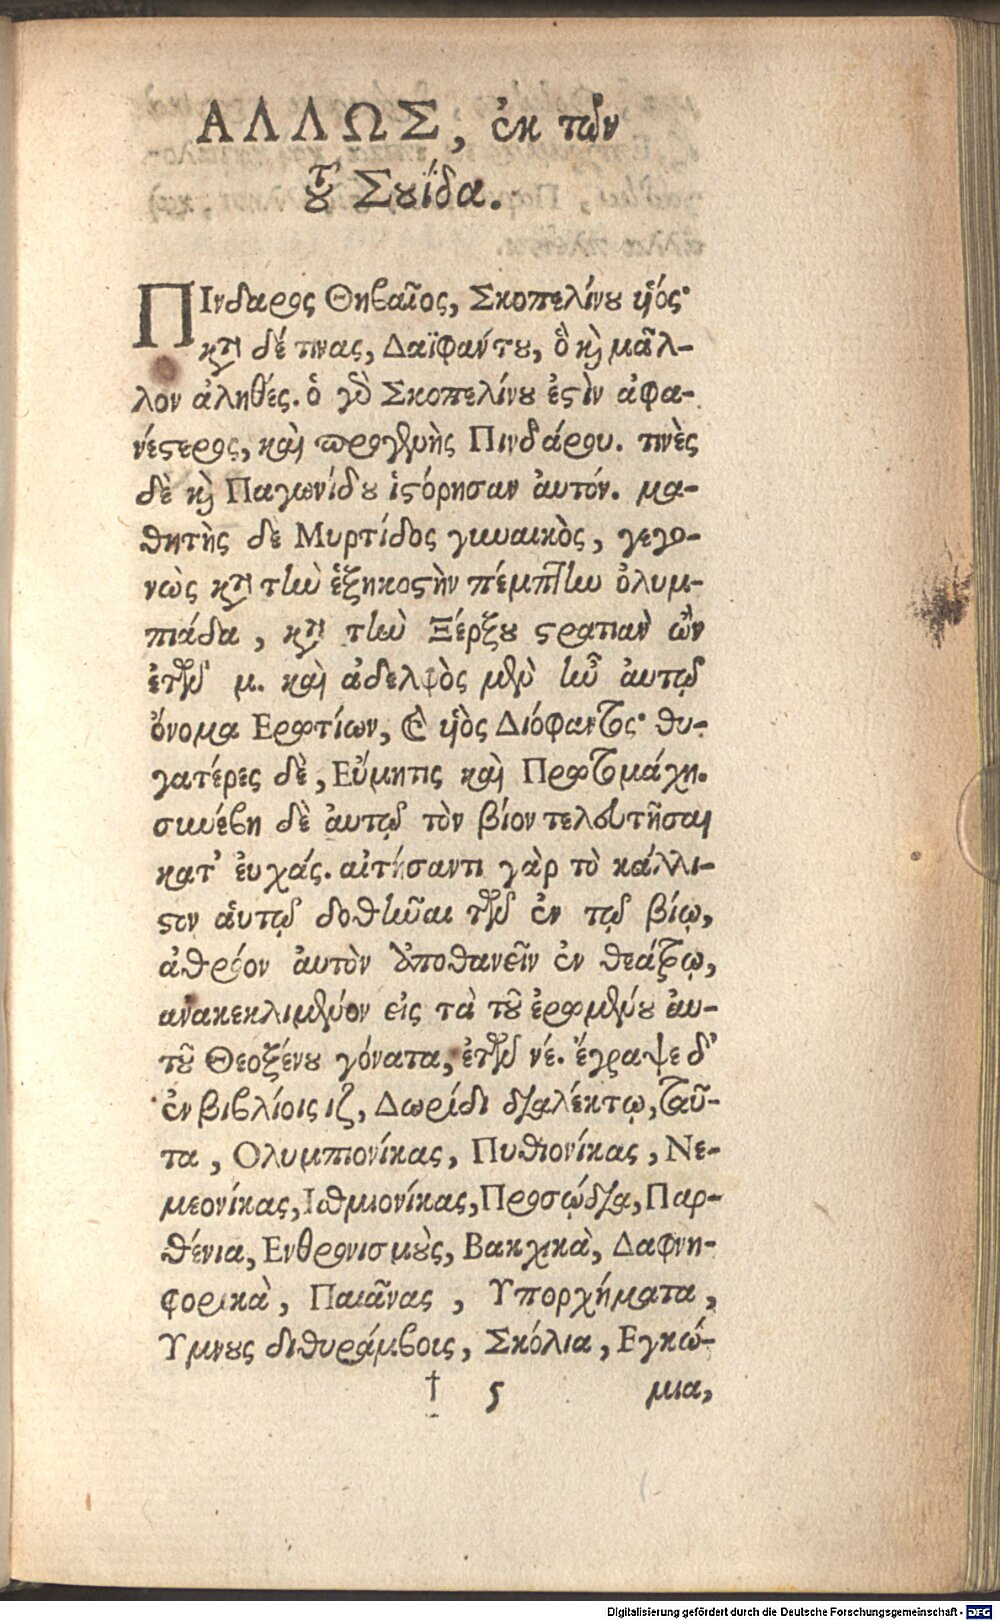 ΑΛΛΩΣ, ἐκ τῶν
τοῦ Σουΐδα.
ΠΙνδαρος Θηβαῖος, Σκοπελίνου υἱός·
κατὰ δέ τινας, Δαϊφαύτου, ὃ καὶ μᾶλ-
λον ἀληθές. ὁ γὰρ Σκοπελίνου ἐστὶν ἀφα-
νέστερος, καὶ προσγενὴς Πινδάρου. τινὲς
δὲ καὶ Παγωνίδου ἱστόρησαν ἀυτόν. μα-
θητὴς δὲ Μυρτίδος γυναικὸς, γεγο-
νὼς κατὰ τὴν ἑξηκοστὴν πέμπτην ὀλυμ-
πιάδα, κατὰ τὴν Ξέρξου στρατιὰν ὢν
ἐτῶν μ. καὶ ἀδελφὸς μὲν ἦν ἀυτῷ
ὄνομα Ερωτίων, καὶ υἱὸς Διόφαντος· θυ-
γατέρες δὲ, Εὔμητις καὶ Πρωτομάχη.
συνέβη δὲ ἀυτῷ τὸν βίον τελευτῆσαι
κατ' ἐυχάς. αἰτήσαντι γὰρ τὸ κάλλι-
στον ἁυτῷ δοθῆναι τῶν ἐν τῷ βίῳ,
ἀθρόον ἀυτὸν ἀποθανεῖν ἐν θεάτρῳ,
ανακεκλιμένον εἰς τὰ τοῦ ἐρωμένου ἀυ-
τοῦ Θεοξένου γόνατα, ἐτῶν νέ. ἔγραψε δ'
ἐν βιβλίοις ιζ, Δωρίδι διαλέκτῳ, ταῦ-
τα, Ολυμπιονίκας, Πυθιονίκας, Νε-
μεονίκας, Ισθμιονίκας, Προσῴδια, Παρ-
θένια, Ενθρονισμοὺς, Βακχικὰ, Δαφνη-
φορικὰ, Παιᾶνας, Υπορχήματα,
Υμνους διθυράμβοις, Σκόλια, Εγκώ-
† 5 μια,
Digitalisierung gefördert durch die Deutsche Forschungsgemeinschaft - DFG